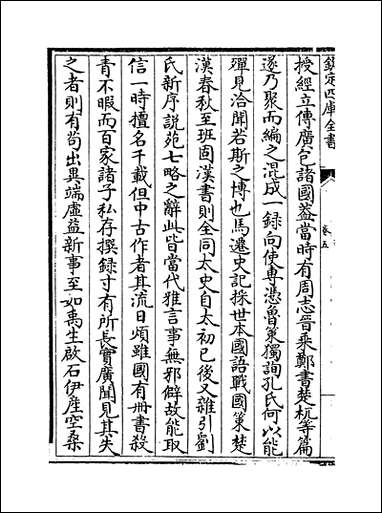 欽定四庫全書
卷五
授經立傳廣包諸國蓋當時有周志晉乘鄭書楚杌等篇
遂乃聚而編之混成一録向使專憑魯策獨詢孔氏何以能
殫見洽聞若斯之博也馬遷史記採世本國語戰國策楚
漢春秋至班固漢書則全同太史自太初已後又雜引劉
氏新序説苑七略之辭此皆當代雅言事無邪僻故能取
信一時擅名千載但中古作者其流日煩雖國有冊書殺
青不暇而百家諸子私存撰録寸有所長實廣聞見其失
之者則有苟出異端虛益新事至如禹生啟石伊産空桑